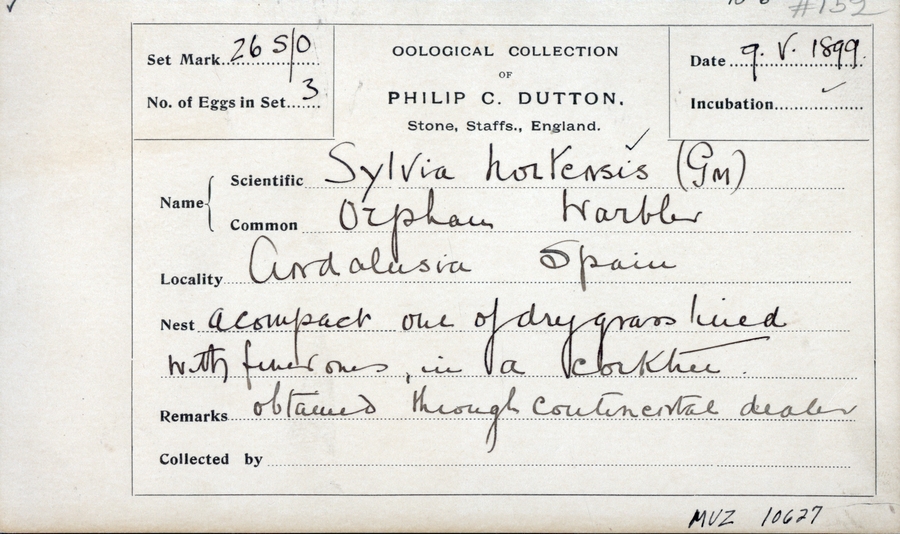 #152
Set Mark 26 S/O
No. of Eggs in Set 3
OOLOGICAL COLLECTION
OF
PHILIP C. DUTTON.
Stone, Staffs., England.
Date 9. V. 1899.
Incubation ✓
Name
Scientific Sylvia hortensis (Gm)
Common Orphean Warbler
Locality Andalusia Spain
Nest a compact one of dry grass lined
with finer ones, in a corktree.
Remarks obtained through continental dealer
Collected by
MVZ 10627